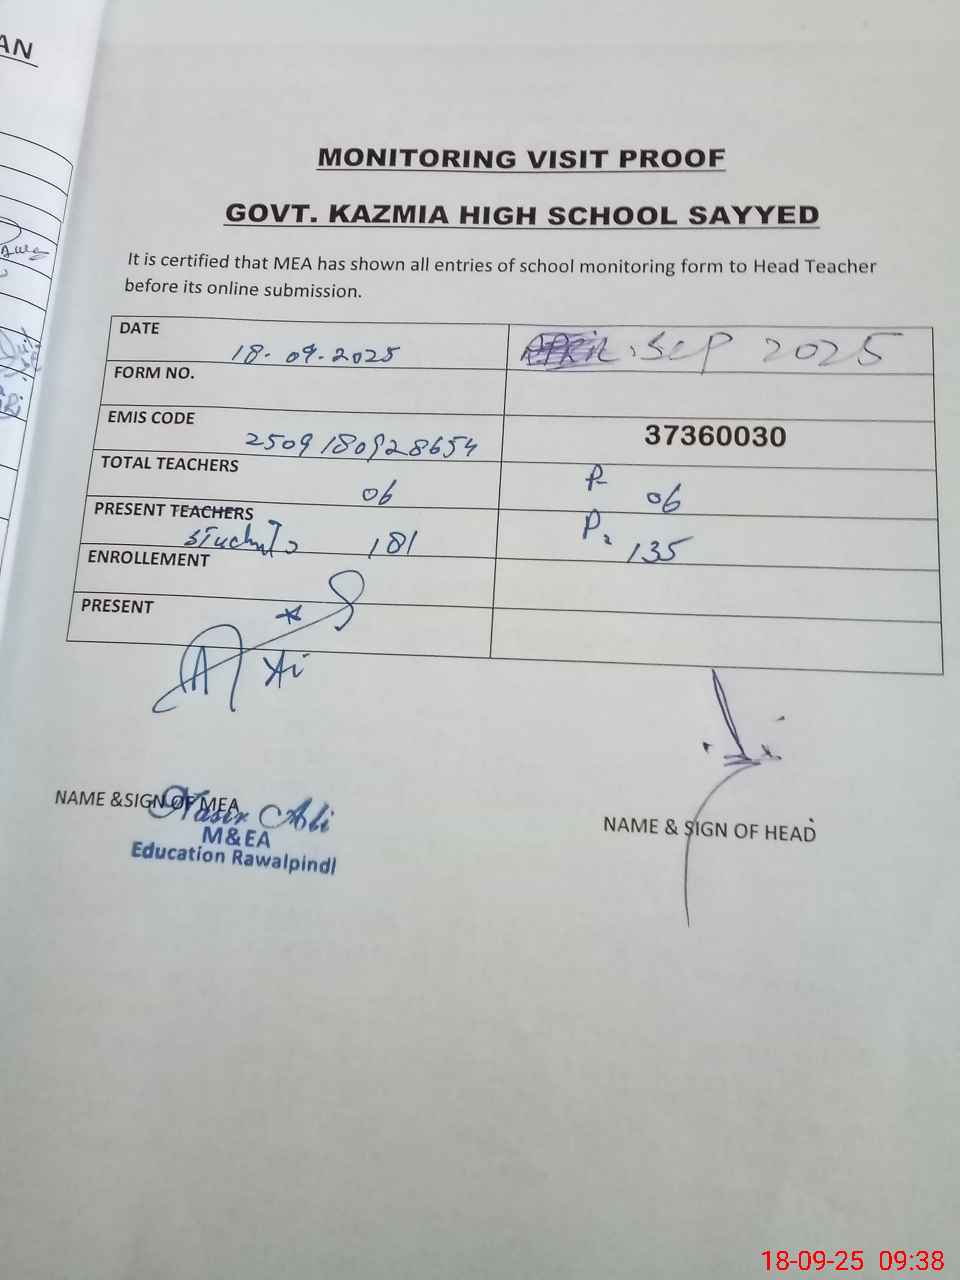 AN
MONITORING VISIT PROOF
GOVT. KAZMIA HIGH SCHOOL SAYYED
It is certified that MEA has shown all entries of school monitoring form to Head Teacher
before its online submission.
DATE
18.09.2025
APRIL. SEP 2025
FORM NO.
EMIS CODE
2509180928654
37360030
TOTAL TEACHERS
06
P- 06
PRESENT TEACHERS
students 181
P. 135
ENROLLEMENT
PRESENT
NAME &SIGN OF MEA
Nasir Ali
M&EA
Education Rawalpindi
NAME & SIGN OF HEAD
18-09-25 09:38